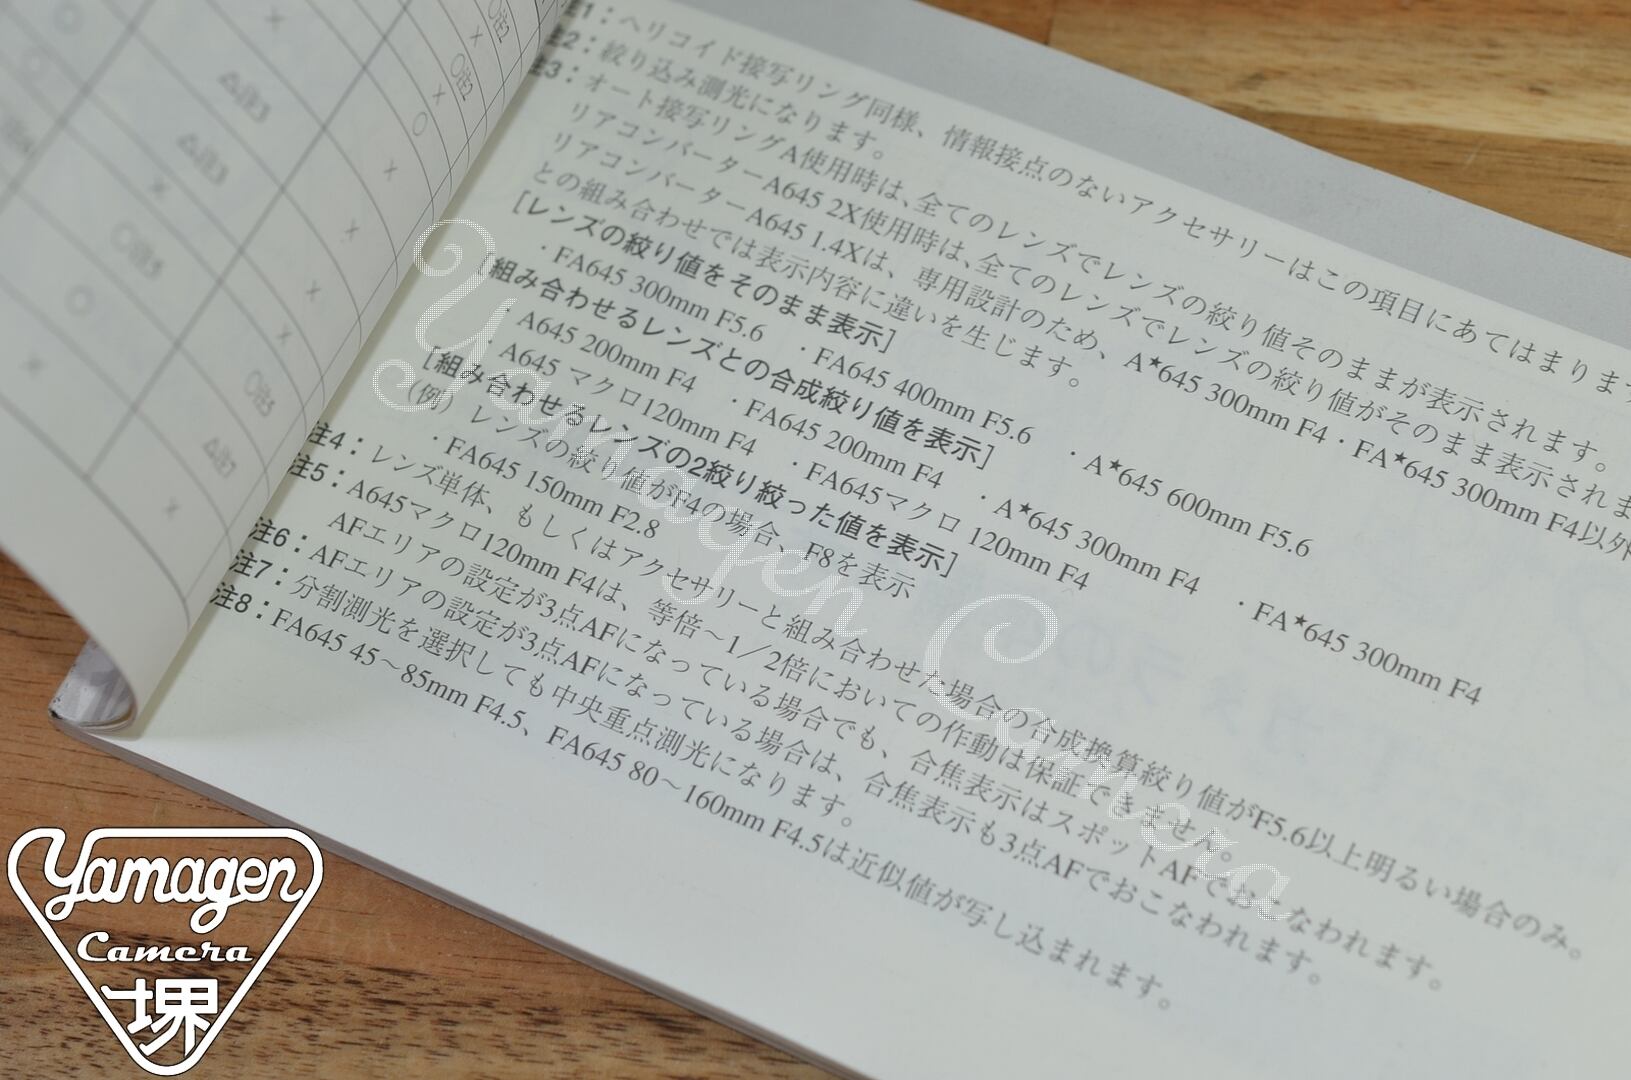 注1：ヘリコイド接写リング同様、情報接点のないアクセサリーはこの項目にあてはまります
注2：絞り込み測光になります。
注3：オート接写リングA使用時は、全てのレンズでレンズの絞り値そのままが表示されます。
リアコンバーターA645 2X使用時は、全てのレンズでレンズの絞り値がそのまま表示されま
リアコンバーターA645 1.4Xは、専用設計のため、A★645 300mm F4・FA★645 300mm F4以外
との組み合わせでは表示内容に違いを生じます。
[レンズの絞り値をそのまま表示]
・FA645 300mm F5.6 ・FA645 400mm F5.6 ・A★645 600mm F5.6
[組み合わせるレンズとの合成絞り値を表示]
・A645 200mm F4 ・FA645 200mm F4 ・A★645 300mm F4 ・FA★645 300mm F4
・A645 マクロ120mm F4 ・FA645マクロ 120mm F4
[組み合わせるレンズの2絞り絞った値を表示]
(例) レンズの絞り値がF4の場合、F8を表示
・FA645 150mm F2.8
注4：レンズ単体、もしくはアクセサリーと組み合わせた場合の合成換算絞り値がF5.6以上明るい場合のみ。
注5：A645マクロ120mm F4は、等倍～1／2倍においての作動は保証できません。
AFエリアの設定が3点AFになっている場合でも、合焦表示はスポットAFでおこなわれます。
注6：AFエリアの設定が3点AFになっている場合は、合焦表示も3点AFでおこなわれます。
注7：分割測光を選択しても中央重点測光になります。
注8：FA645 45～85mm F4.5、FA645 80～160mm F4.5は近似値が写し込まれます。
Yamagen Camera
Yamagen
Camera
堺